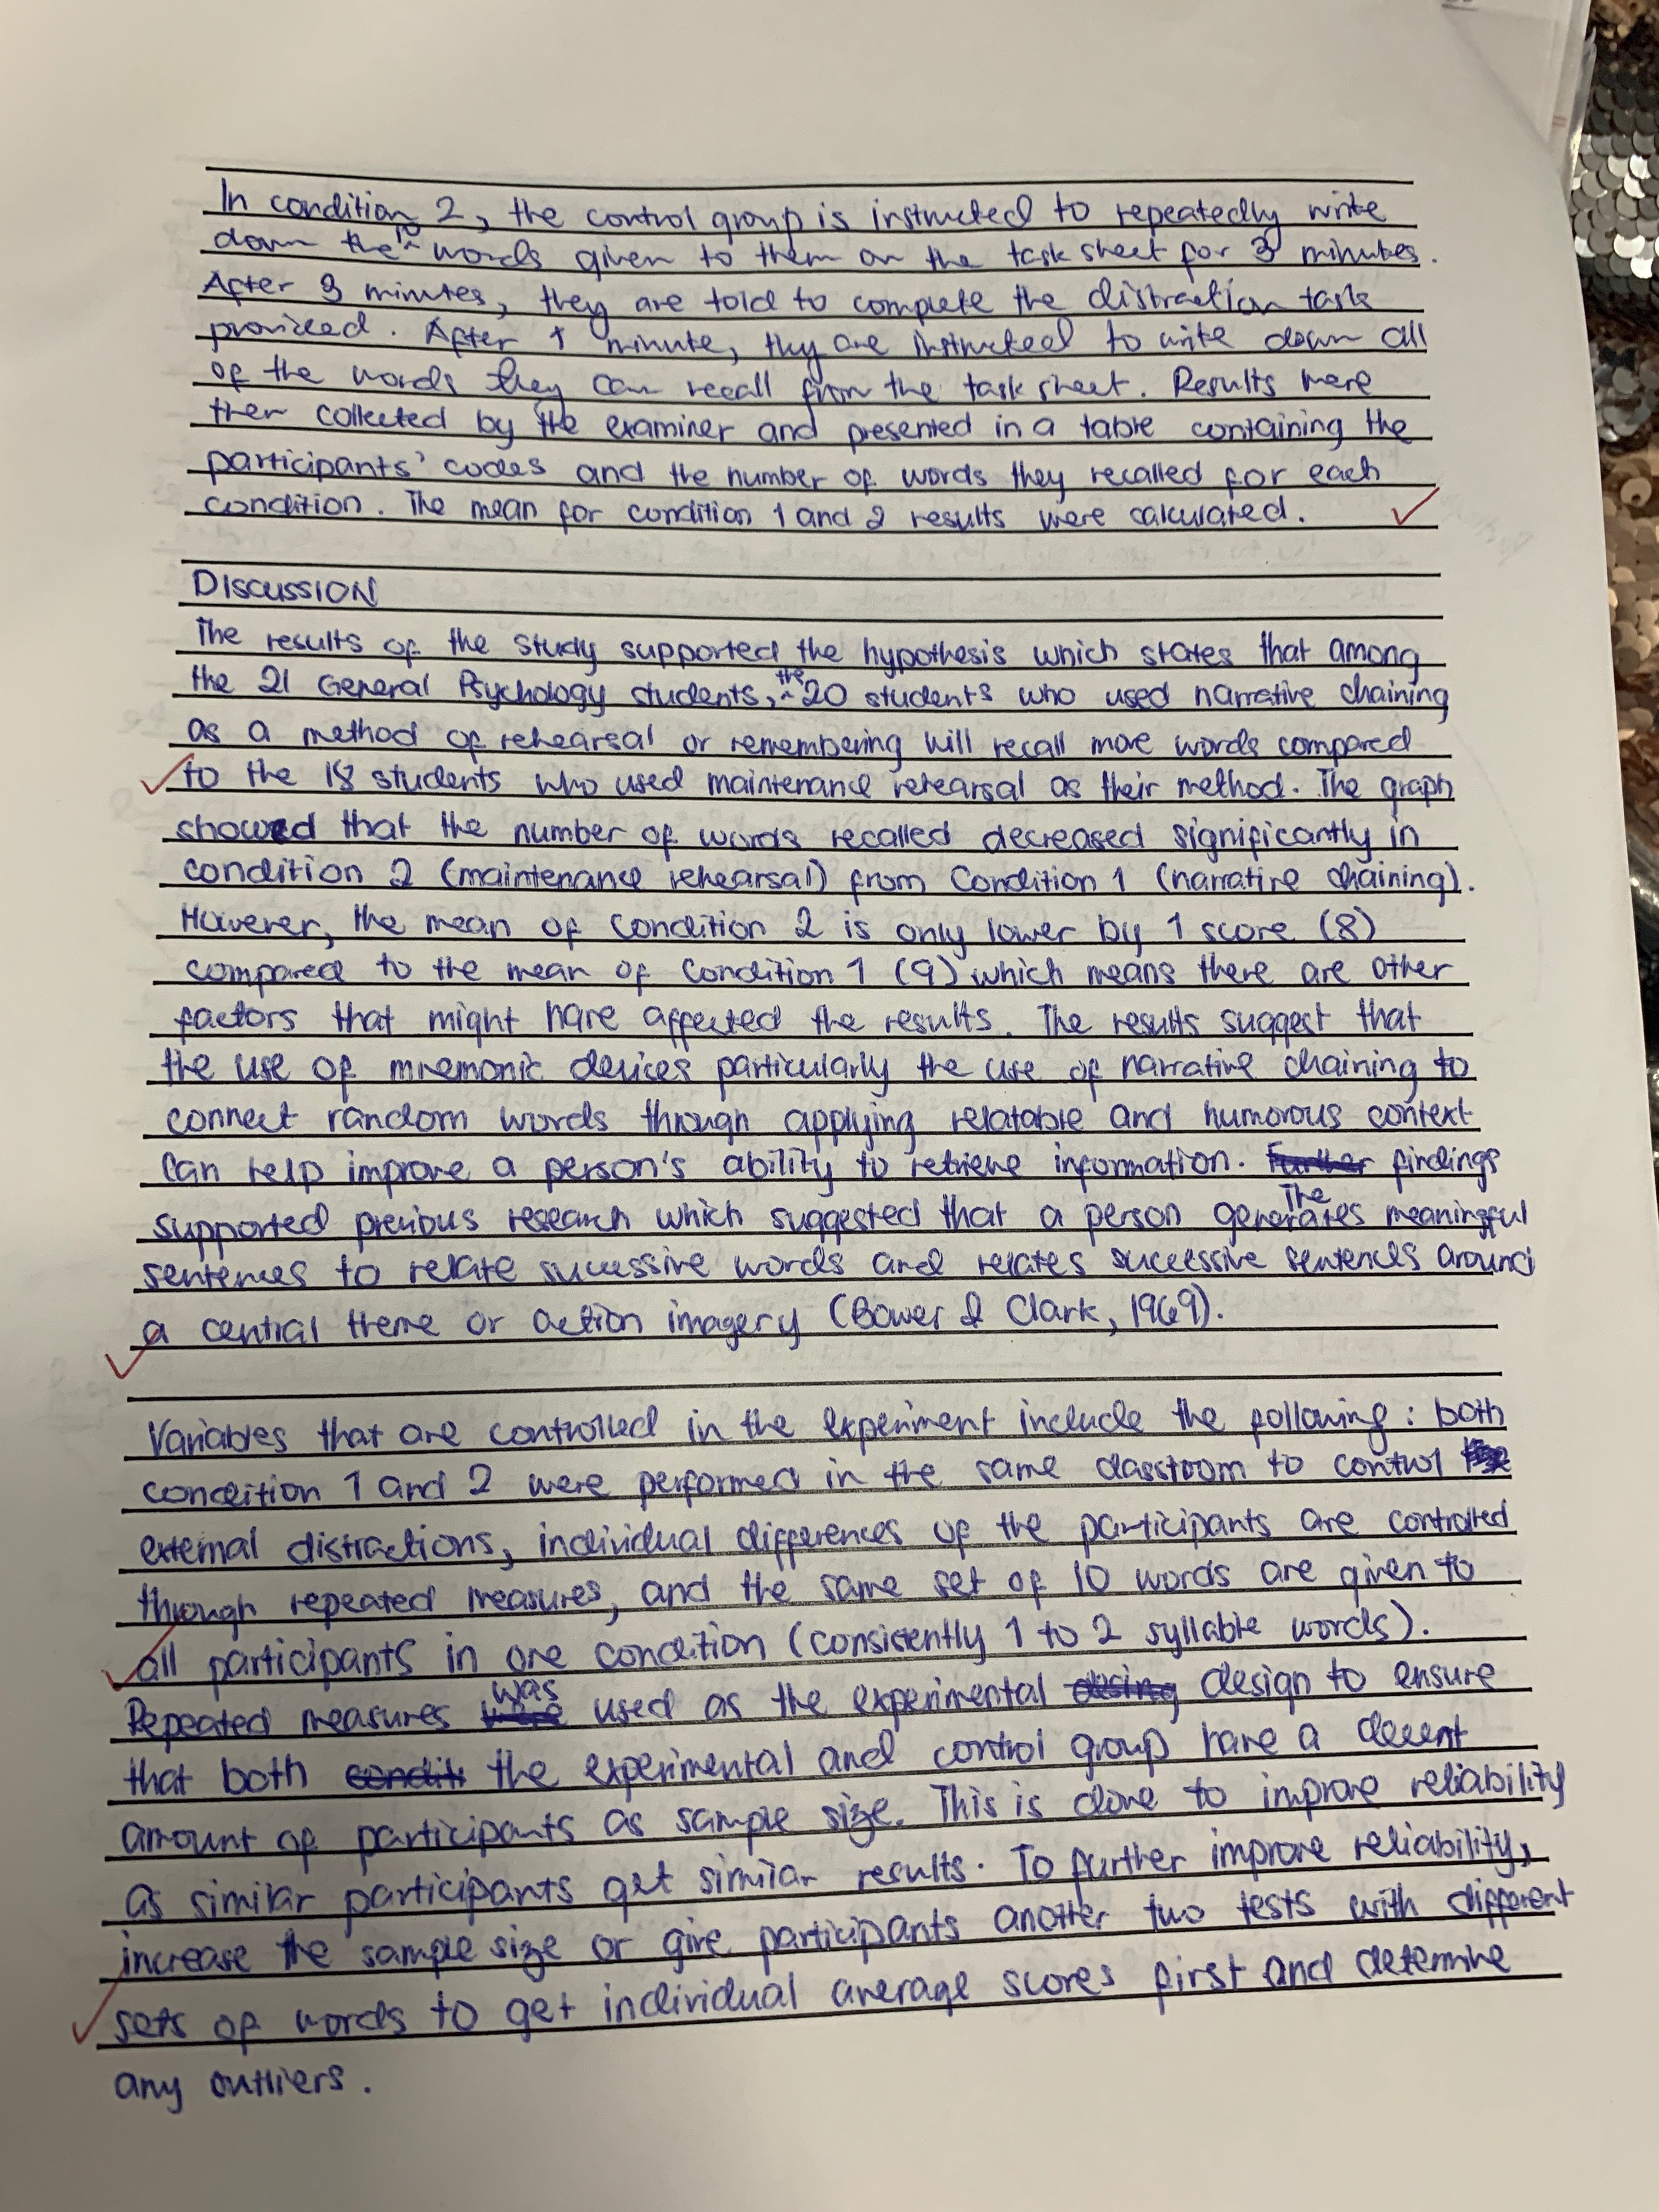 In condition 2, the control group is instructed to repeatedly write
down the 10 words given to them on the task sheet for 3 minutes.
After 3 minutes, they are told to complete the distraction task
provided. After 1 minute, they are instructed to write down all
of the words they can recall from the task sheet. Results were
then collected by the examiner and presented in a table containing the
participants' codes and the number of words they recalled for each
condition. The mean for condition 1 and 2 results were calculated.
DISCUSSION
The results of the study supported the hypothesis which states that among
the 21 General Psychology students, the 20 students who used narrative chaining
as a method of rehearsal or remembering will recall more words compared
to the 18 students who used maintenance rehearsal as their method. The graph
showed that the number of words recalled decreased significantly in
condition 2 (maintenance rehearsal) from Condition 1 (narrative chaining).
However, the mean of condition 2 is only lower by 1 score (8)
compared to the mean of Condition 1 (9) which means there are other
factors that might have affected the results. The results suggest that
the use of mnemonic devices particularly the use of narrative chaining to
connect random words through applying relatable and humorous context
can help improve a person's ability to retrieve information. The findings
supported previous research which suggested that a person generates meaningful
sentences to relate successive words and relates successive sentences around
a central theme or action imagery (Bower & Clark, 1969).
Variables that are controlled in the experiment include the following: both
condition 1 and 2 were performed in the same classroom to control
external distractions, individual differences of the participants are controlled
through repeated measures, and the same set of 10 words are given to
all participants in one condition (consistently 1 to 2 syllable words).
Repeated measures was used as the experimental design to ensure
that both the experimental and control group have a decent
amount of participants as sample size. This is done to improve reliability
as similar participants get similar results. To further improve reliability,
increase the sample size or give participants another two tests with different
sets of words to get individual average scores first and determine
any outliers.